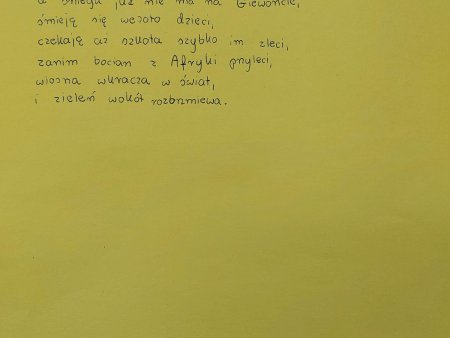 a śniegu już nie ma na Giewoncie,
śmieją się wesoło dzieci,
czekają aż szkoła szybko im zleci,
zanim bocian z Afryki przyleci,
wiosna wkracza w świat,
i zieleń wokół rozbrzmiewa.